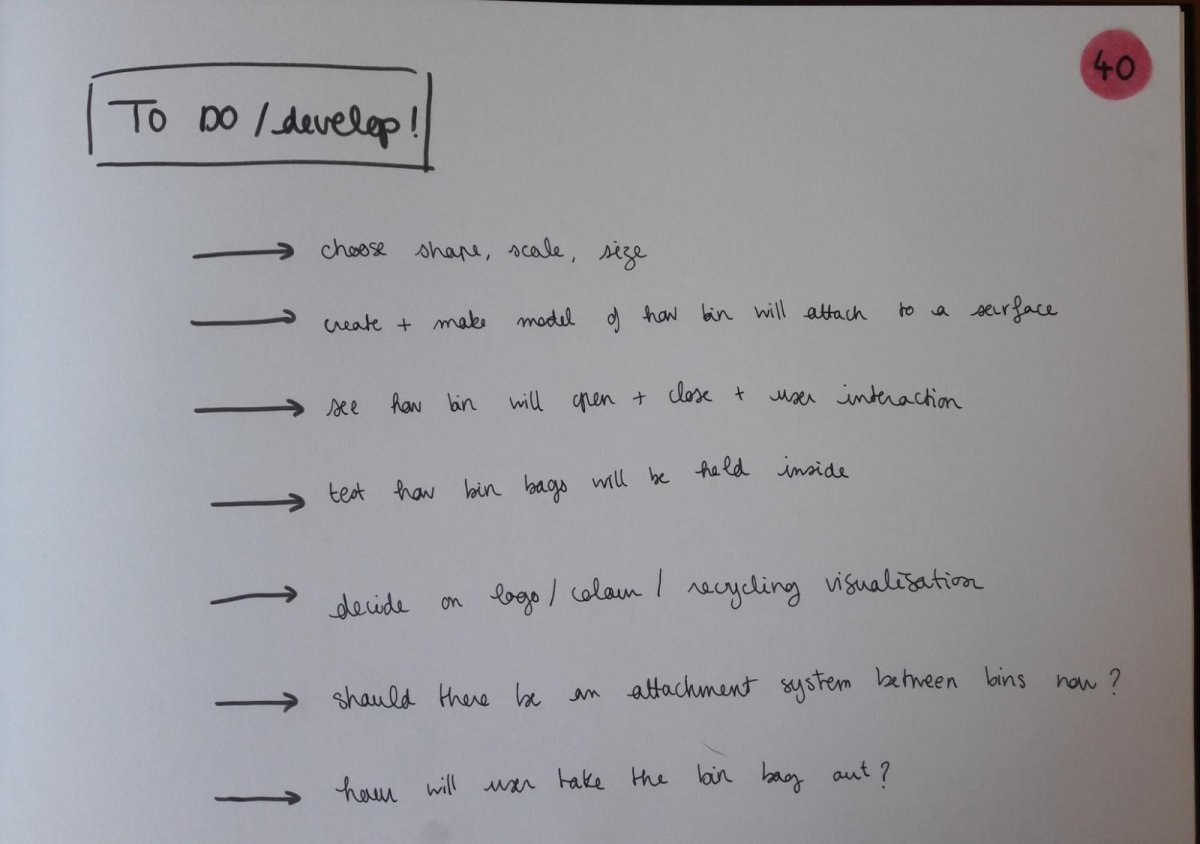 40
TO DO / develop!
choose shape, scale, size
create + make model of how bin will attach to a surface
see how bin will open + close + user interaction
test how bin bags will be held inside
decide on logo / colour / recycling visualisation
should there be an attachment system between bins now?
how will user take the bin bag out?